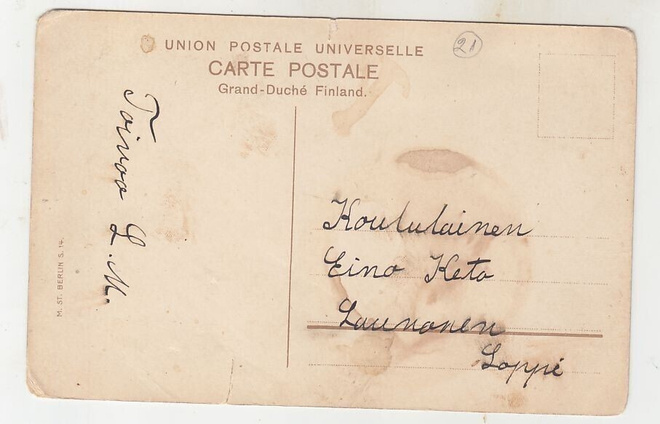 UNION POSTALE UNIVERSELLE
CARTE POSTALE
Grand-Duché Finland.
21
Toivoo L. M.
Koululainen
Eino Keto
Launonen
Loppi
M. ST. BERLIN S. 14.